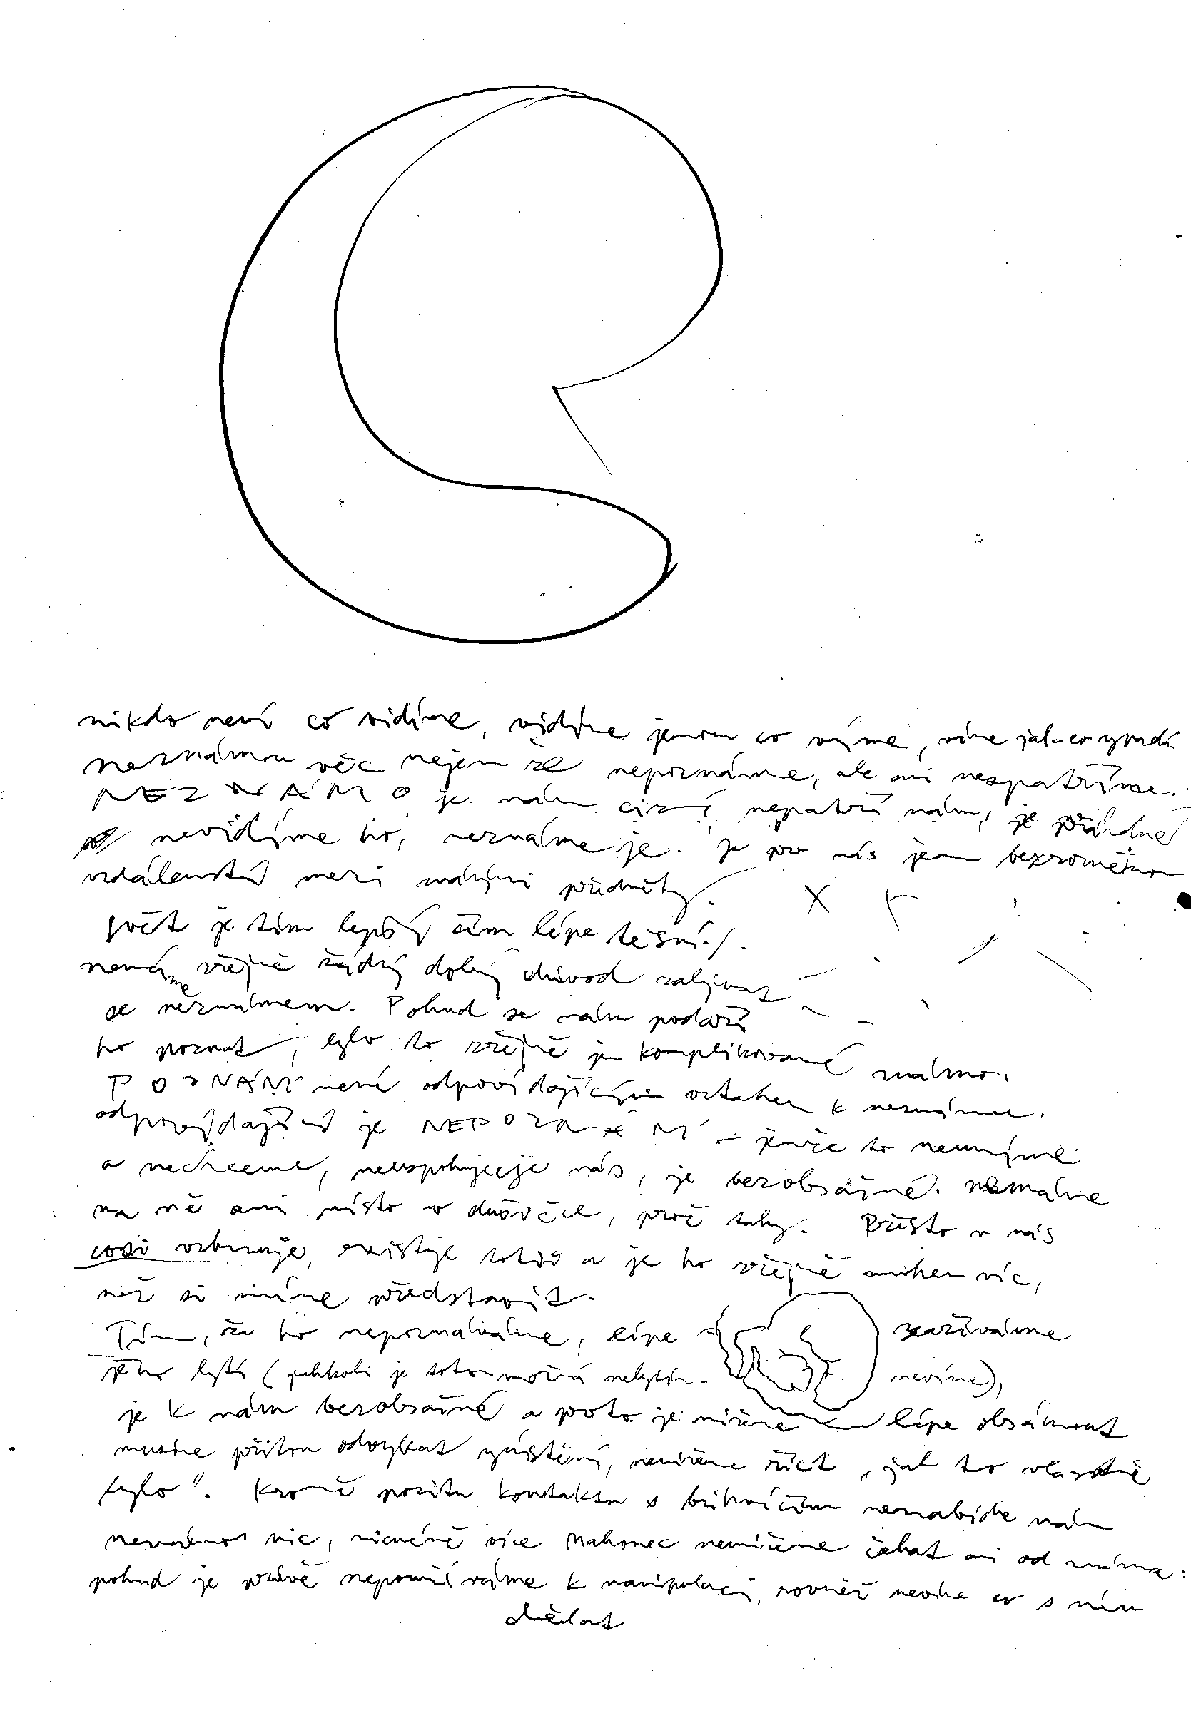 nikdo neví co vidíme, vidíme jenom co víme, víme jak co vypadá
neznámou věc nejen že nepoznáme, ale ani nespatříme.
NEZNÁMO je nám cizí, nepatří nám, je
nevidíme ho, neznáme je. je pro nás jen bezrozměrnou
vzdáleností mezi známými předměty.
svět je tím lepší čím lépe těsní.
není víc žádný dobrý důvod zabývat
se neznámem. Pokud se nám podaří
ho poznat, bylo to zřejmě jen komplikované známo.
POZNÁNÍ není odpovídajícím vztahem k neznámu.
odpovídající je NEPOZNÁNÍ – jenže to neumíme
a nechceme, neuspokojuje nás, je bezobsažné. nemáme
na ně ani místo v důvěře, proč taky. Přesto v nás
cosi vzbuzuje, existuje totiž a je ho zřejmě mnohem víc,
než si umíme představit.
Tím, že ho nepoznáváme, lépe zaznamenáváme
jeho bytí (jakkoli je toto možná nebytím. nevíme),
je k nám bezobsažné a proto je můžeme lépe obsáhnout
musíme přitom odvyknout zjištění, nemůžeme říct „jak to vlastně
bylo“. Kromě pocitu kontaktu s něčím nenabídne nám
neznámo nic, nicméně více nakonec nemůžeme čekat ani od známa.
pokud je právě nepoužíváme k manipulaci, rovněž nevíme co s ním
dělat